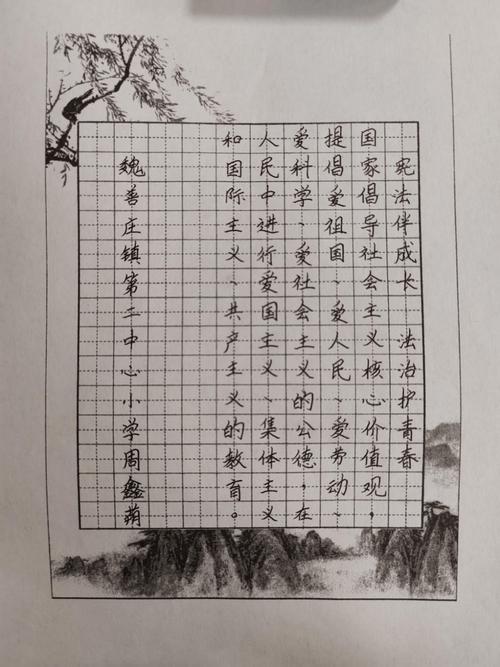 宪法伴成长 法治护青春
国家倡导社会主义核心价值观，
提倡爱祖国、爱人民、爱劳动、
爱科学、爱社会主义的公德，在
人民中进行爱国主义、集体主义
和国际主义、共产主义的教育。
魏善庄镇第二中心小学周鑫蒴